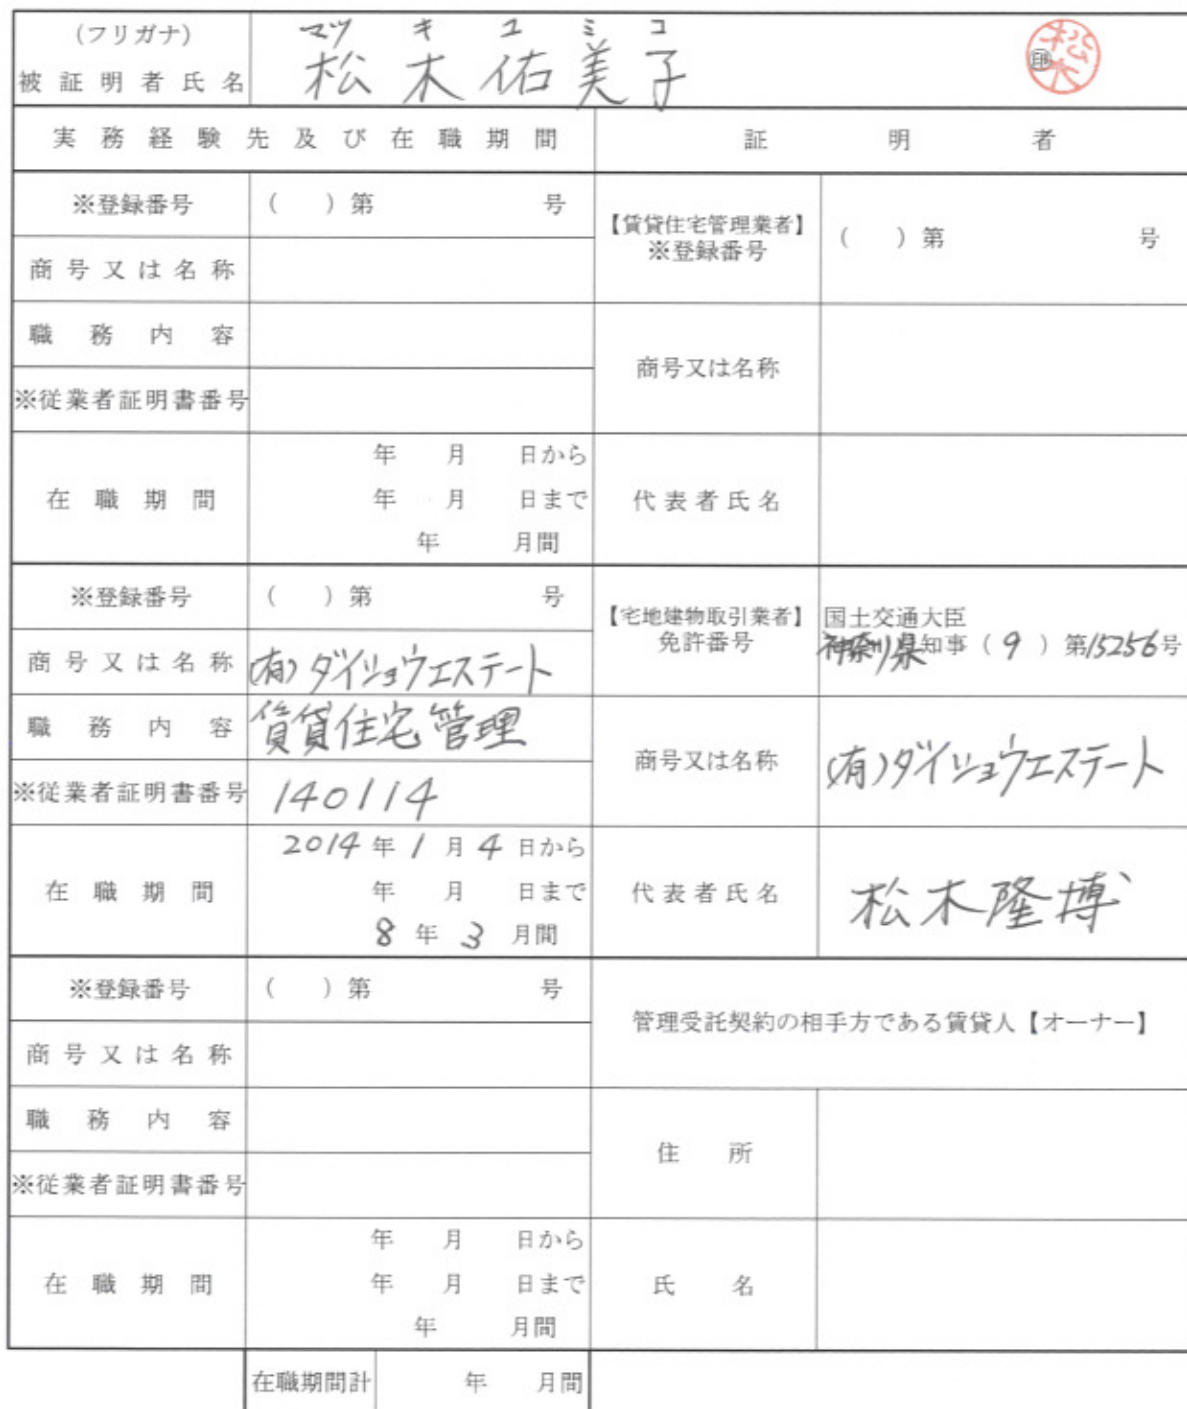 (フリガナ) マツ キ ユ ミ コ
被証明者氏名 松木佑美子 ㊞ 松木
実務経験先及び在職期間 証明者
※登録番号 ( ) 第 号 【賃貸住宅管理業者】 ※登録番号 ( ) 第 号
商号又は名称
職務内容 商号又は名称
※従業者証明書番号
在職期間 年 月 日から
年 月 日まで 代表者氏名
年 月間
※登録番号 ( ) 第 号 【宅地建物取引業者】 免許番号 国土交通大臣
神奈川県知事 ( 9 ) 第15256号
商号又は名称 (有)ダイショウエステート
職務内容 賃貸住宅管理 商号又は名称 (有)ダイショウエステート
※従業者証明書番号 140114
在職期間 2014年1月4日から
年 月 日まで 代表者氏名 松木隆博
8年3月間
※登録番号 ( ) 第 号 管理受託契約の相手方である賃貸人【オーナー】
商号又は名称
職務内容 住所
※従業者証明書番号
在職期間 年 月 日から
年 月 日まで 氏名
年 月間
在職期間計 年 月間